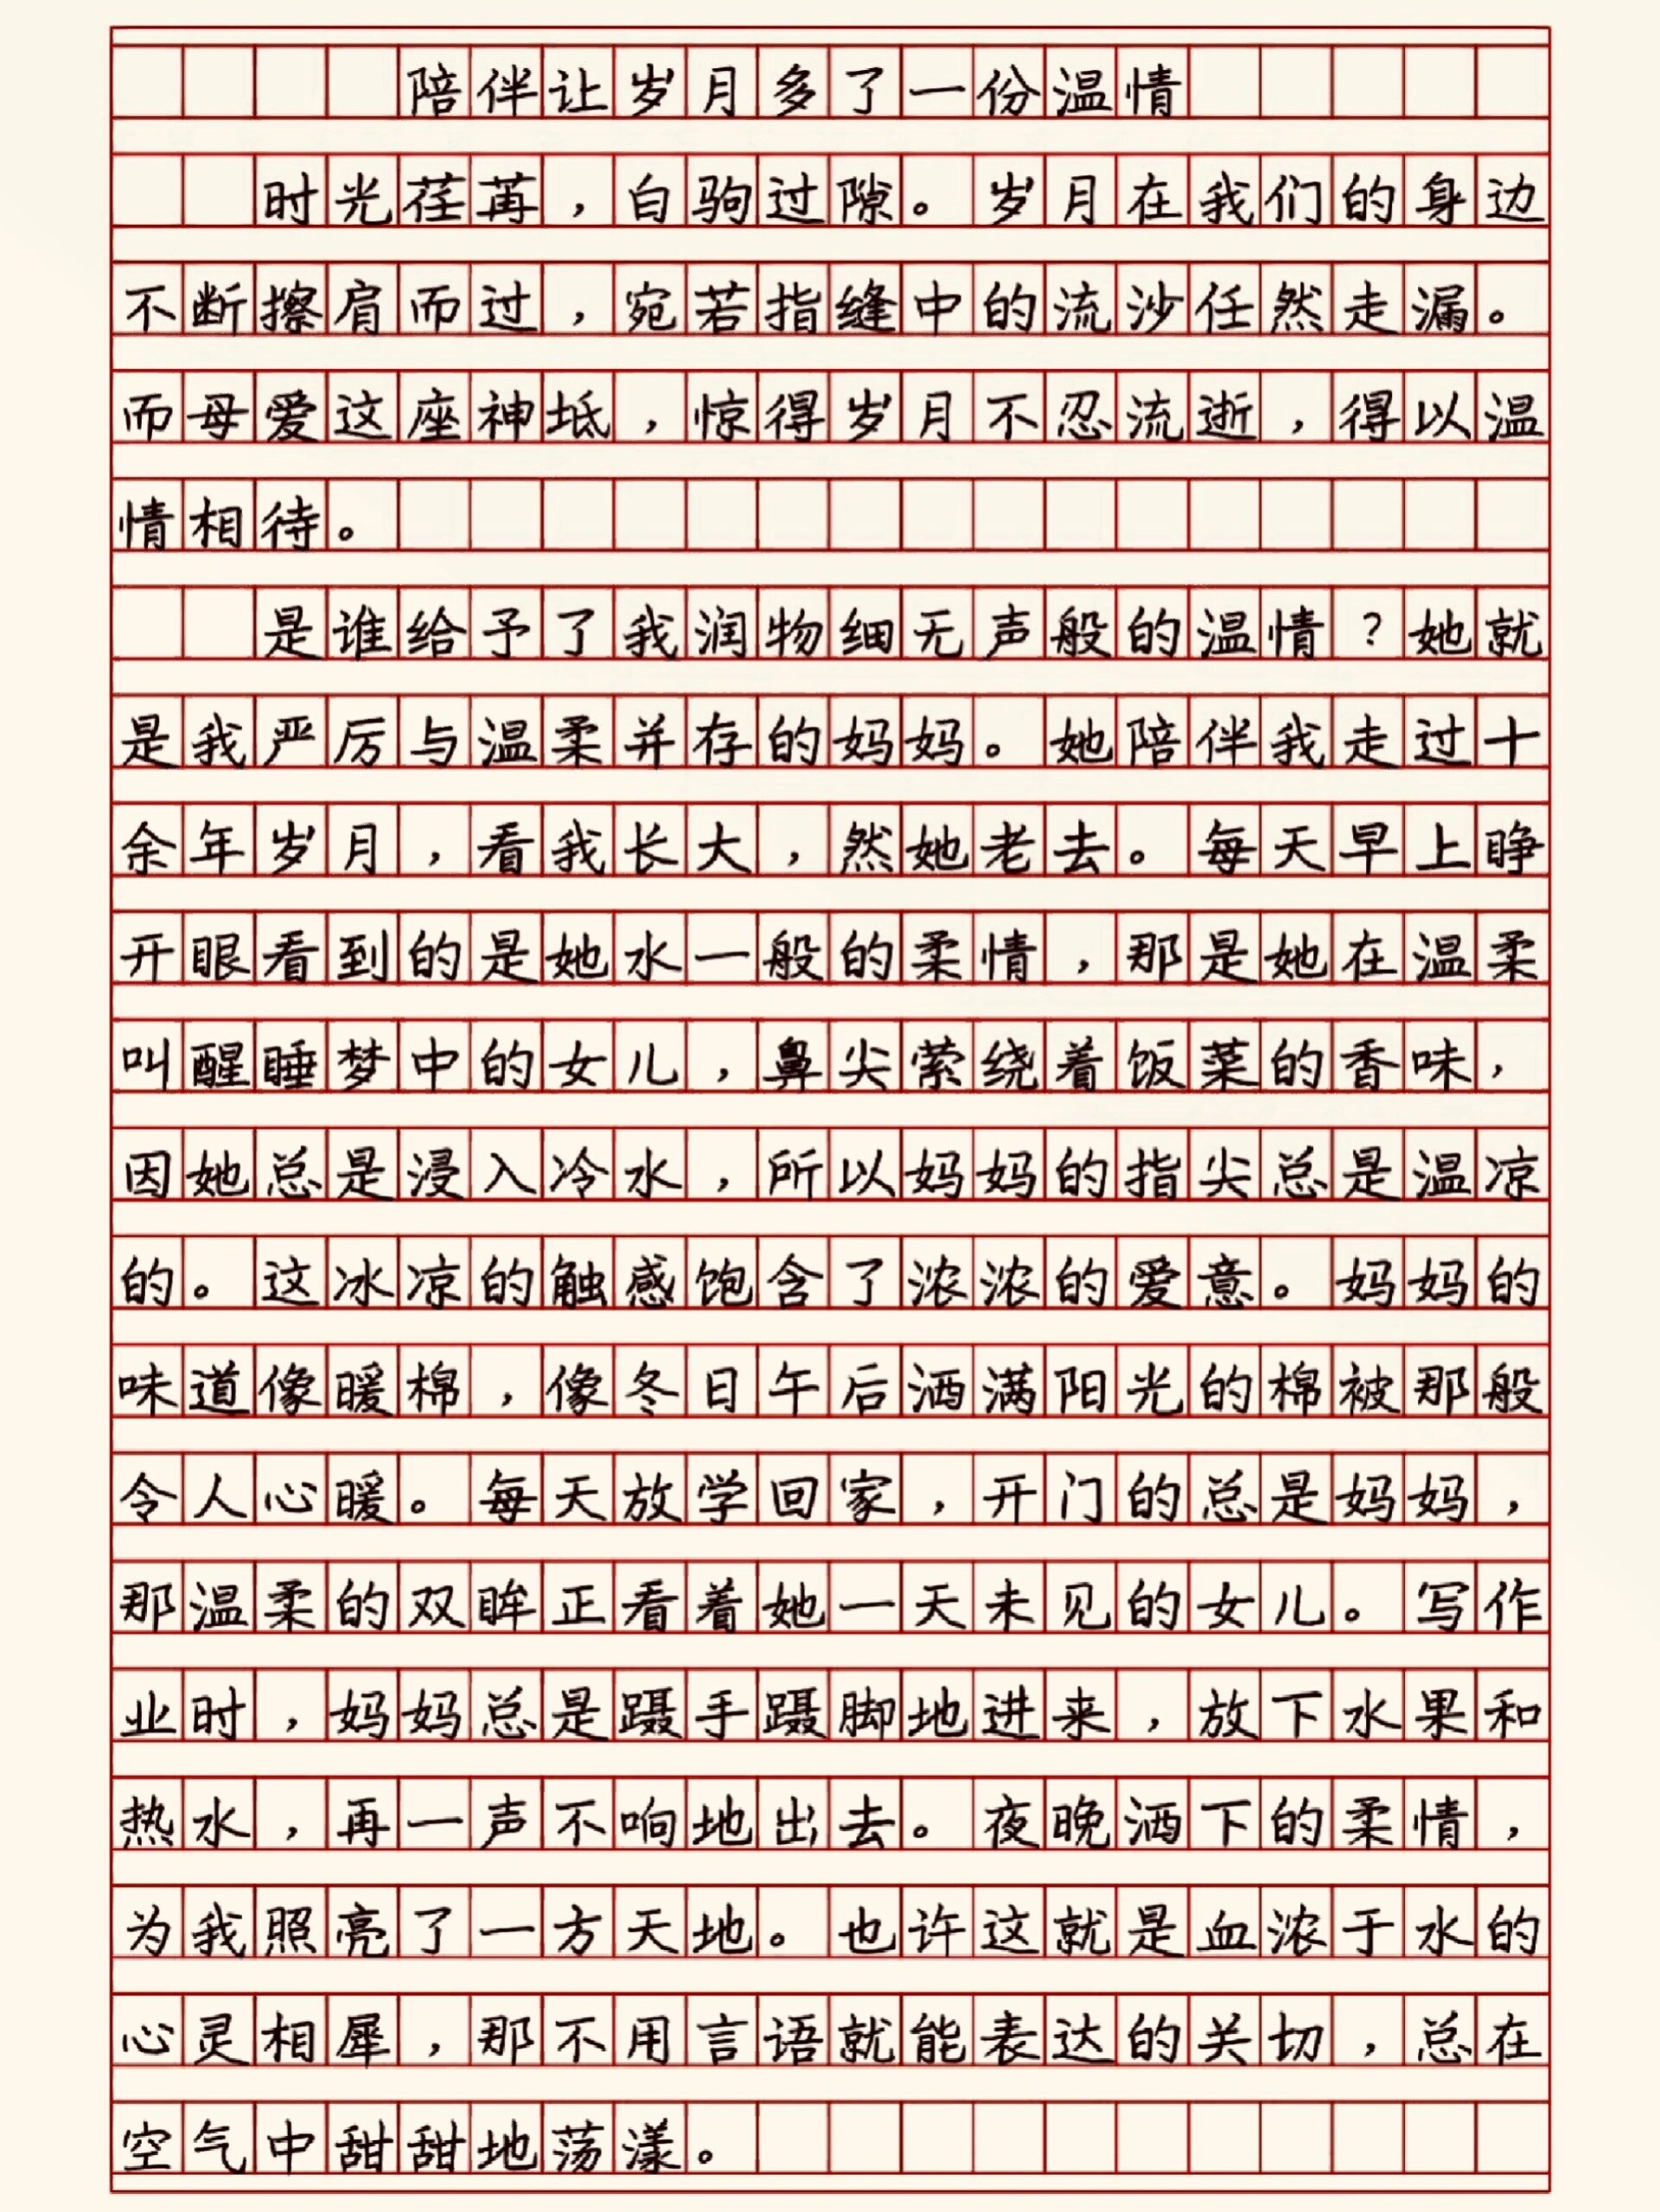 陪伴让岁月多了一份温情
时光荏苒，白驹过隙。岁月在我们的身边
不断擦肩而过，宛若指缝中的流沙任然走漏。
而母爱这座神坻，惊得岁月不忍流逝，得以温
情相待。
是谁给予了我润物细无声般的温情？她就
是我严厉与温柔并存的妈妈。她陪伴我走过十
余年岁月，看我长大，然她老去。每天早上睁
开眼看到的是她水一般的柔情，那是她在温柔
叫醒睡梦中的女儿，鼻尖萦绕着饭菜的香味，
因她总是浸入冷水，所以妈妈的指尖总是温凉
的。这冰凉的触感饱含了浓浓的爱意。妈妈的
味道像暖棉，像冬日午后洒满阳光的棉被那般
令人心暖。每天放学回家，开门的总是妈妈，
那温柔的双眸正看着她一天未见的女儿。写作
业时，妈妈总是蹑手蹑脚地进来，放下水果和
热水，再一声不响地出去。夜晚洒下的柔情，
为我照亮了一方天地。也许这就是血浓于水的
心灵相犀，那不用言语就能表达的关切，总在
空气中甜甜地荡漾。